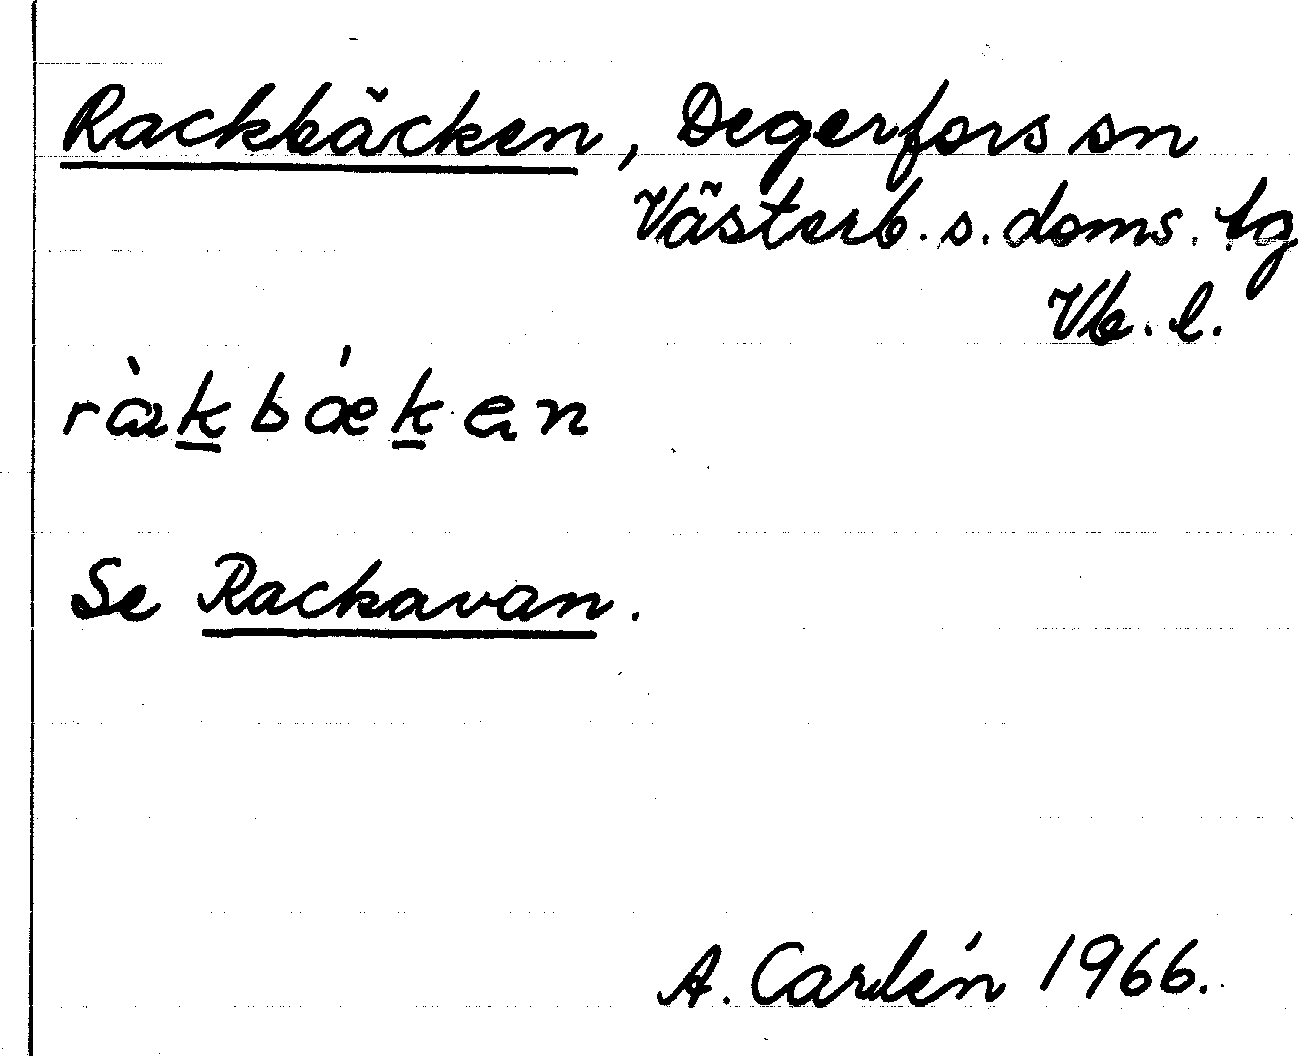 Rackbäcken, Degerfors sn
Västerb. s. doms. tg
Vb. l.
ràkbǽkən
Se Rackavan.
A. Carlén 1966.